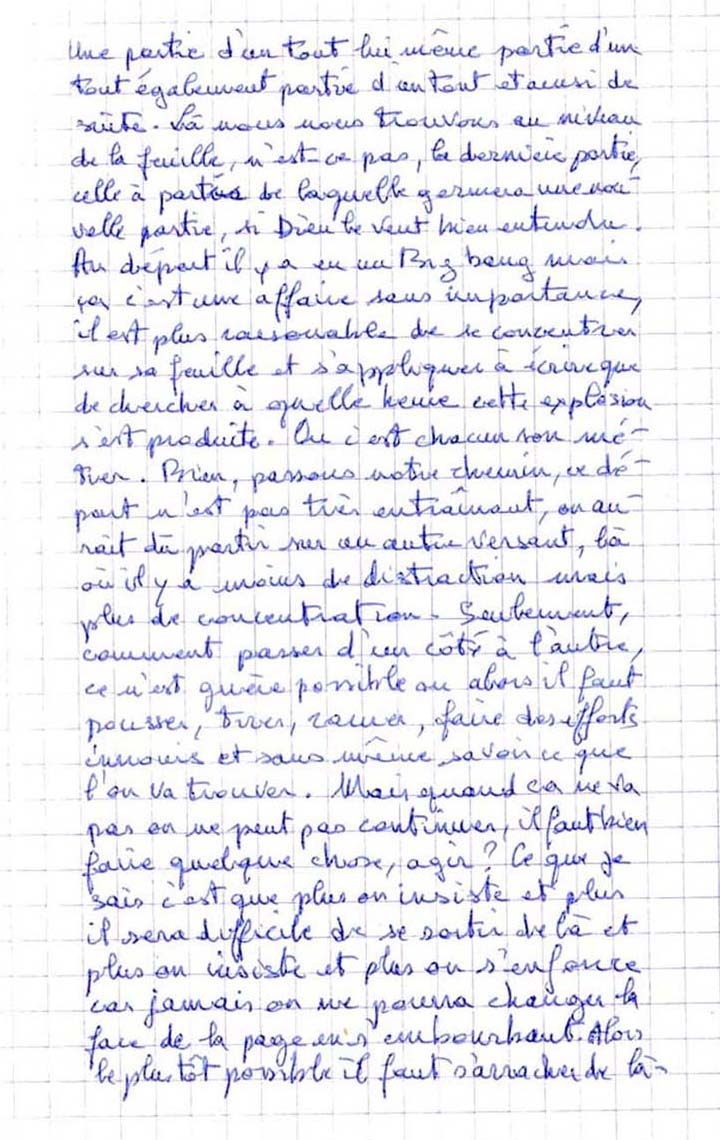 Une partie d'un tout lui même partie d'un
tout également partie d'un tout et ainsi de
suite. Là nous nous trouvons au niveau
de la feuille, n'est-ce pas, la dernière partie,
celle à partir de laquelle germera une nou-
velle partie, si Dieu le veut bien entendu.
Au départ il y a eu un Big bang mais
ça c'est une affaire sans importance,
il est plus raisonnable de se concentrer
sur sa feuille et s'appliquer à écrire que
de chercher à quelle heure cette explosion
s'est produite. Ou c'est chacun son mé-
tier. Bien, passons notre chemin, ce dé-
part n'est pas très entraînant, on au-
rait dû partir sur un autre versant, là
où il y a moins de distraction mais
plus de concentration. Seulement,
comment passer d'un côté à l'autre,
ce n'est guère possible ou alors il faut
pousser, tirer, ramer, faire des efforts
innouis et sans même savoir ce que
l'on va trouver. Mais quand ça ne va
pas on ne peut pas continuer, il faut bien
faire quelque chose, agir? Ce que je
sais c'est que plus on insiste et plus
il sera difficile de se sortir de là et
plus on insiste et plus on s'enfonce
car jamais on ne pourra changer la
face de la page en s'embourbant. Alors
le plus tôt possible il faut s'arracher de là-